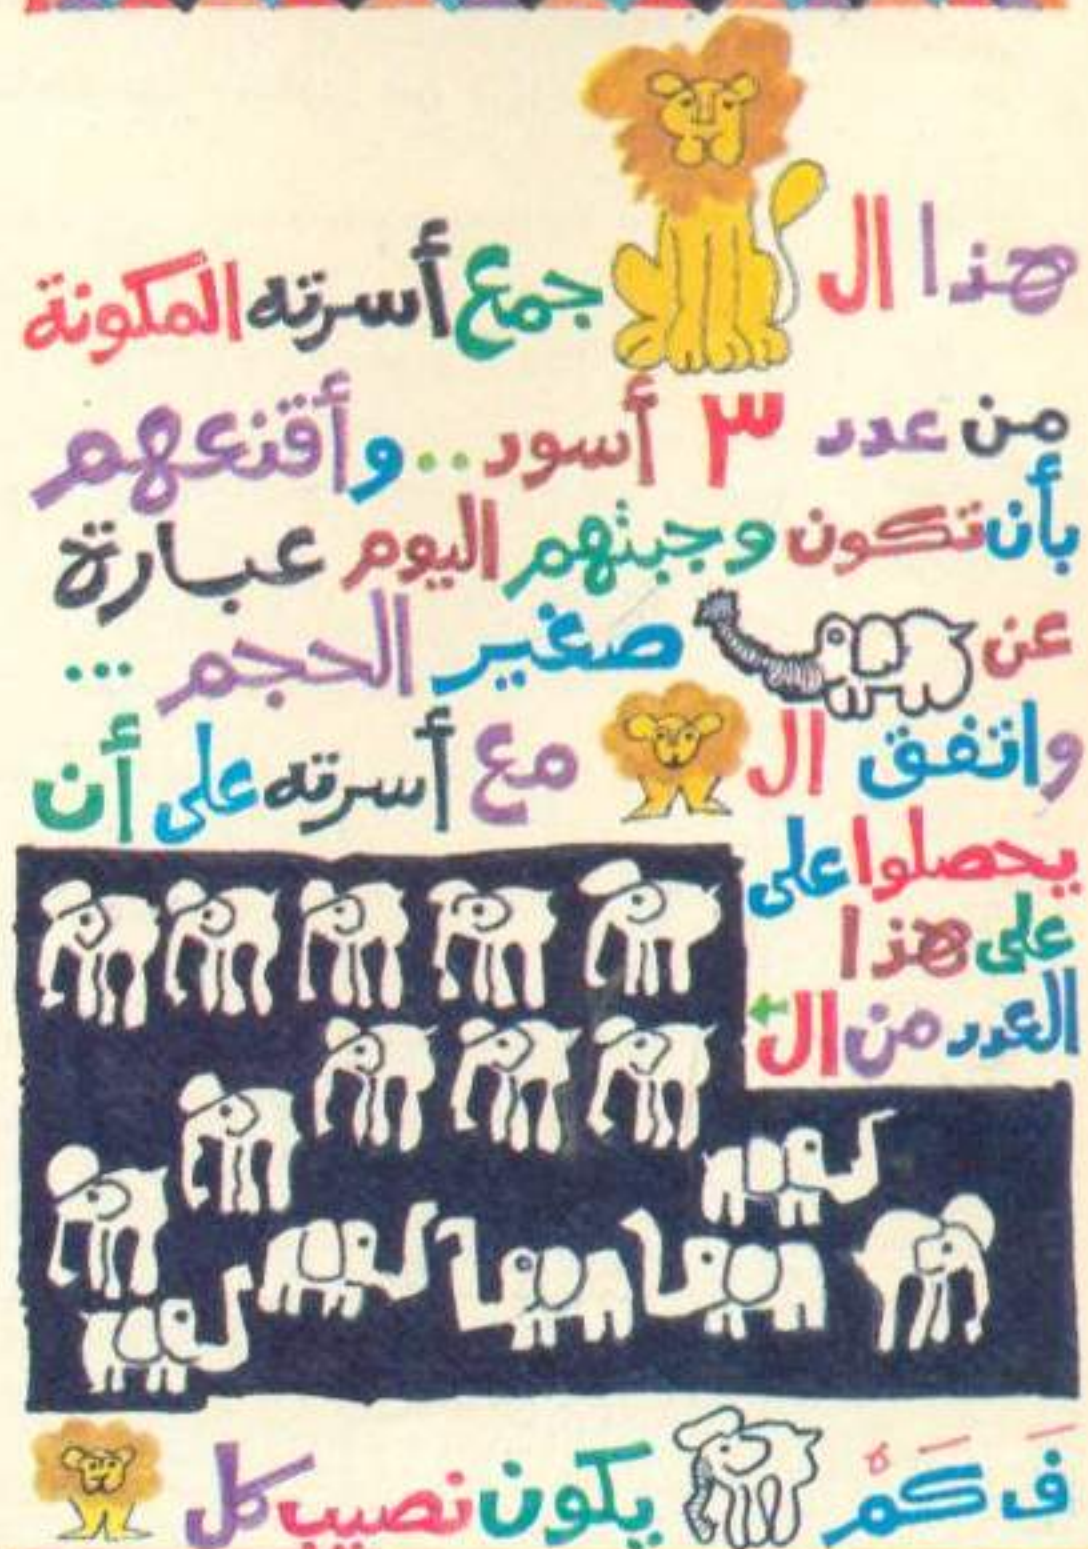 هذا ال جمع أسرته المكونة
من عدد ٣ أسود .. وأقنعهم
بأن تكون وجبتهم اليوم عبارة
عن صغير الحجم ...
واتفق ال مع أسرته على أن
يحصلوا على
على هذا
العدد من ال
فَ كَمْ يكون نصيب كل